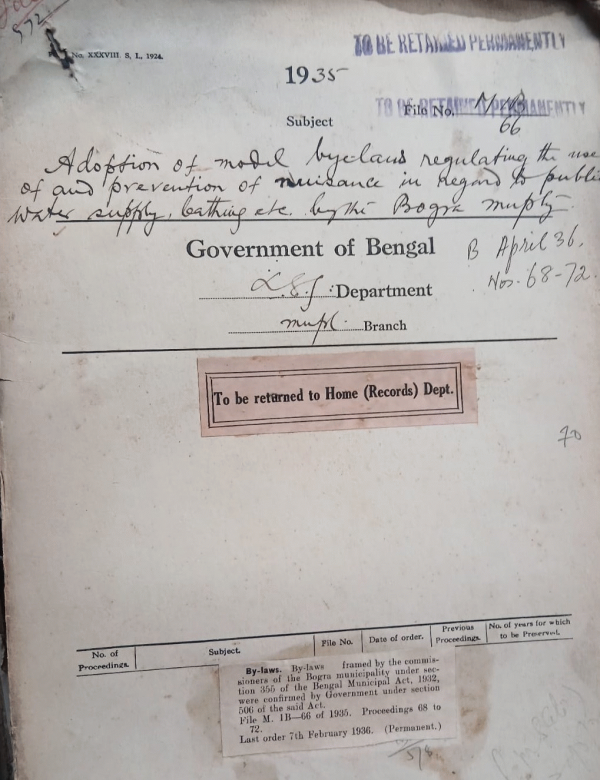 572
No. XXXVIII. S. I., 1924.
TO BE RETAINED PERMANENTLY
1935
TO BE RETAINED PERMANENTLY
File No.
66
Subject
Adoption of model byelaws regulating the use
of and prevention of nuisance in regard to public
water supply, bathing etc. by the Bogra muplty.
Government of Bengal
B April 36.
Nos. 68-72.
L.S.G. Department
mupl. Branch
To be returned to Home (Records) Dept.
70
No. of Proceedings.
Subject.
File No.
Date of order.
Previous Proceedings.
No. of years for which to be Preserved.
By-laws. By-laws framed by the commis-
sioners of the Bogra municipality under sec-
tion 355 of the Bengal Municipal Act, 1932,
were confirmed by Government under section
506 of the said Act.
File M. 1B—66 of 1935. Proceedings 68 to
72.
Last order 7th February 1936. (Permanent.)